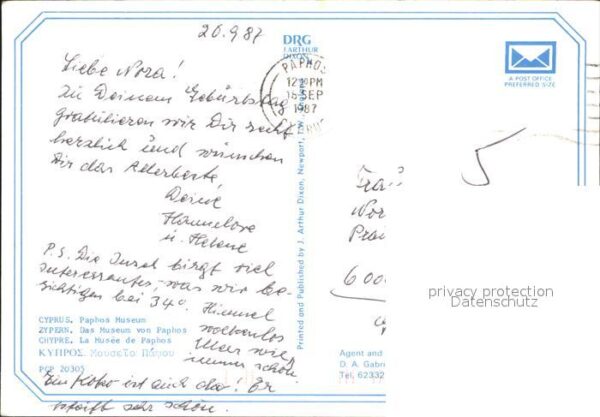 20.9.87
DRG
J. ARTHUR
DIXON
A POST OFFICE
PREFERRED SIZE
PAPHOS
12 PM
SEP
1987
Liebe Nora!
Zu Deinem Gebürtstag
gratulieren wir Dir recht
herzlich und wünschen
Dir das Allerbeste,
Deine
Hannelore
u. Helene
P.S. Die Insel birgt viel
Interessantes, was wir be-
sichtigen bei 34° Himmel
wolkenlos
Meer wie
immer schön.
CYPRUS. Paphos Museum
ZYPERN. Das Museum von Paphos
CHYPRE. La Musée de Paphos
ΚΥΠΡΟΣ. Μουσείο Πάφου
PCP 20305
Ein ist auch da! Er
sehr schön.
Printed and Published by J. Arthur Dixon, Newport, I.W.,
5
Nor
6000
privacy protection
Datenschutz
Agent and
D. A. Gabri
Tel: 62332